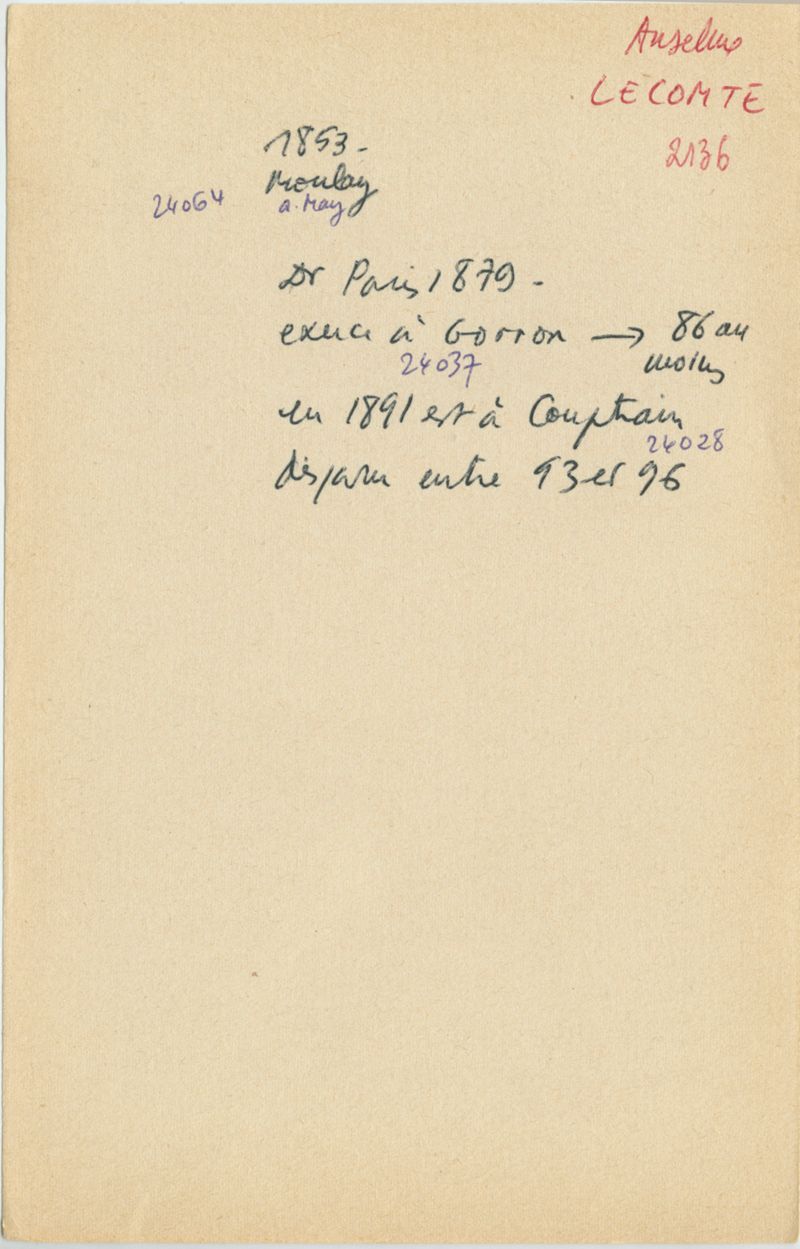 Anselme
LECOMTE
2136
1853-
Moulay
24064 a. May
Dr Paris 1879-
exerce à Gorron → 86 au
moins
24037
en 1891 est à Couptrain
24028
disparu entre 93 et 96